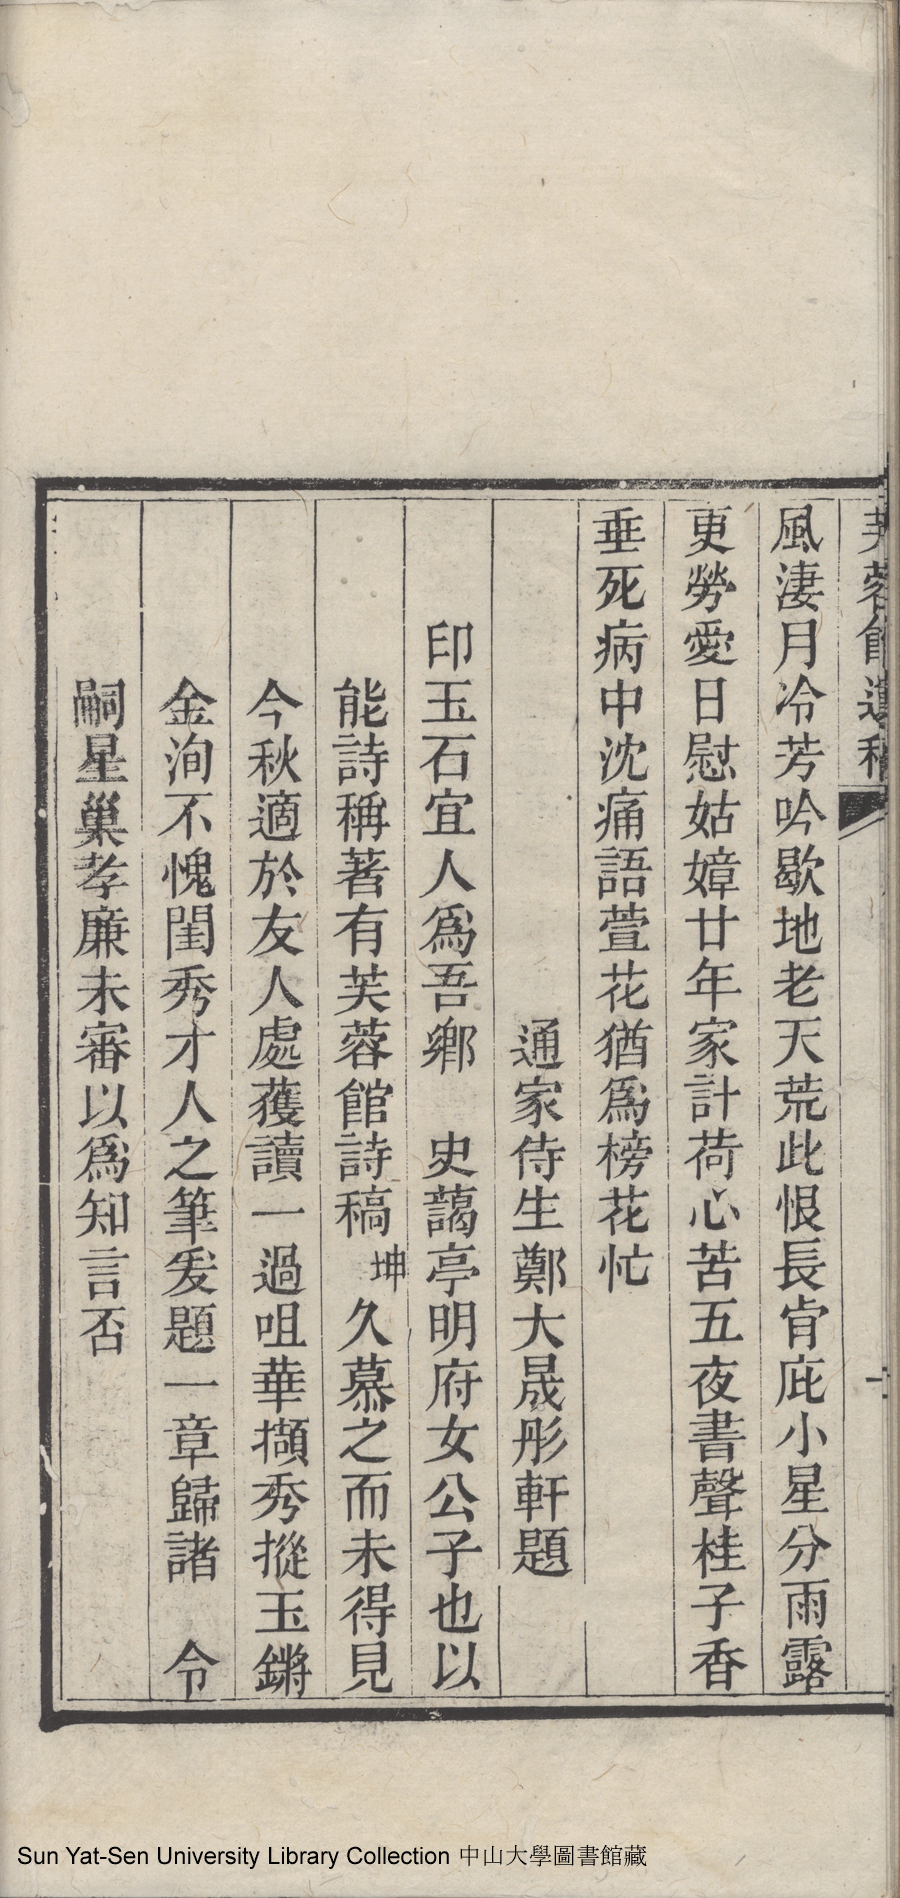 芙蓉館遺稿
風淒月冷芳吟歇地老天荒此恨長肯庇小星分雨露
更勞愛日慰姑嫜廿年家計荷心苦五夜書聲桂子香
垂死病中沈痛語萱花猶爲榜花忙
通家侍生鄭大晟彤軒題
印玉石宜人爲吾鄉 史藹亭明府女公子也以
能詩稱著有芙蓉館詩稿坤久慕之而未得見
今秋適於友人處獲讀一過咀華擷秀摐玉鏘
金洵不愧閨秀才人之筆爰題一章歸諸 令
嗣星巢孝廉未審以爲知言否
Sun Yat-Sen University Library Collection 中山大學圖書館藏